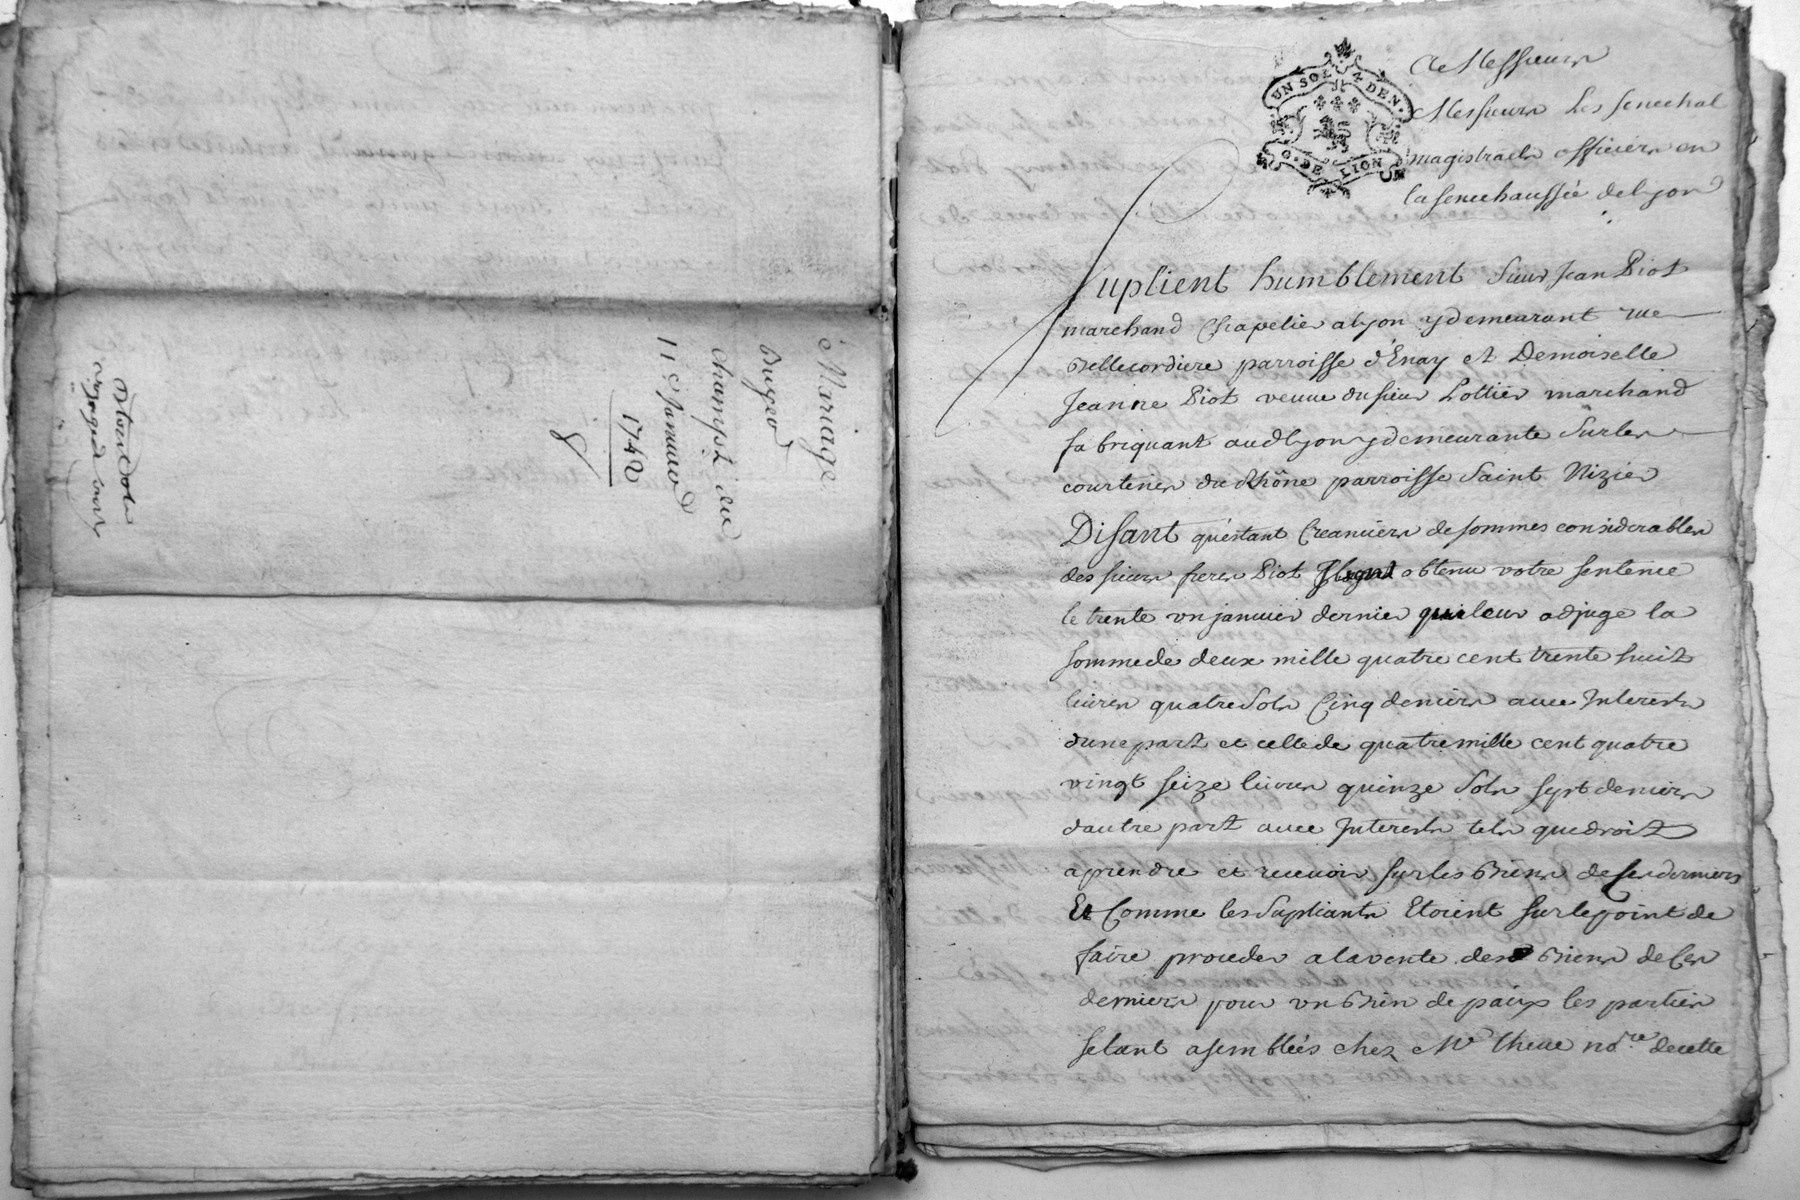 Mariage
Bugeo
champt du
11e Janvier
1740
UN SOL 4 DEN.
G. DE LION
A Messieurs
Messieurs Les senechal
magistrats officiers en
la senechaussée de lyon
Suplient humblement Sieur Jean Piot
marchand Chapelier a lyon y demeurant rue
Bellecordiere parroisse d'Enay et Demoiselle
Jeanne Piot veuve du sieur Lottier marchand
fabriquant aud lyon y demeurante Surles
courtines du Rhône parroisse Saint Nizier
Disant qu'estant Creanciers de sommes considerables
des sieurs freres Piot obtenu votre sentence
le trente un janvier dernier qui leur adjuge la
somme de deux mille quatre cent trente huit
livres quatre Sols Cinq deniers avec Interests
dune part et celle de quatre mille cent quatre
vingt seize livres quinze Sols sept deniers
dautre part avec Interests tels que droit
a prendre et recevoir sur les Biens de Ses derniers
Et Comme les Supliants Etoient sur le point de
faire proceder a la vente des Biens de Ces
derniers pour un Bien de paix les parties
setant asemblées chez Me theve notre de cette